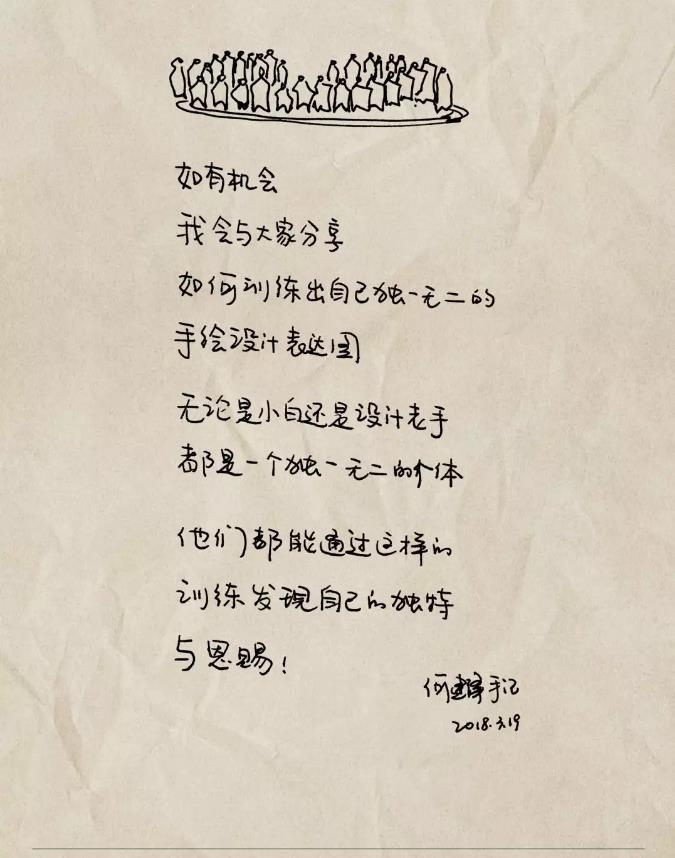 如有机会
我会与大家分享
如何训练出自己独一无二的
手绘设计表达图
无论是小白还是设计老手
都是一个独一无二的个体
他们都能通过这样的
训练发现自己的独特
与恩赐!
何建泽手记
2018.3.19